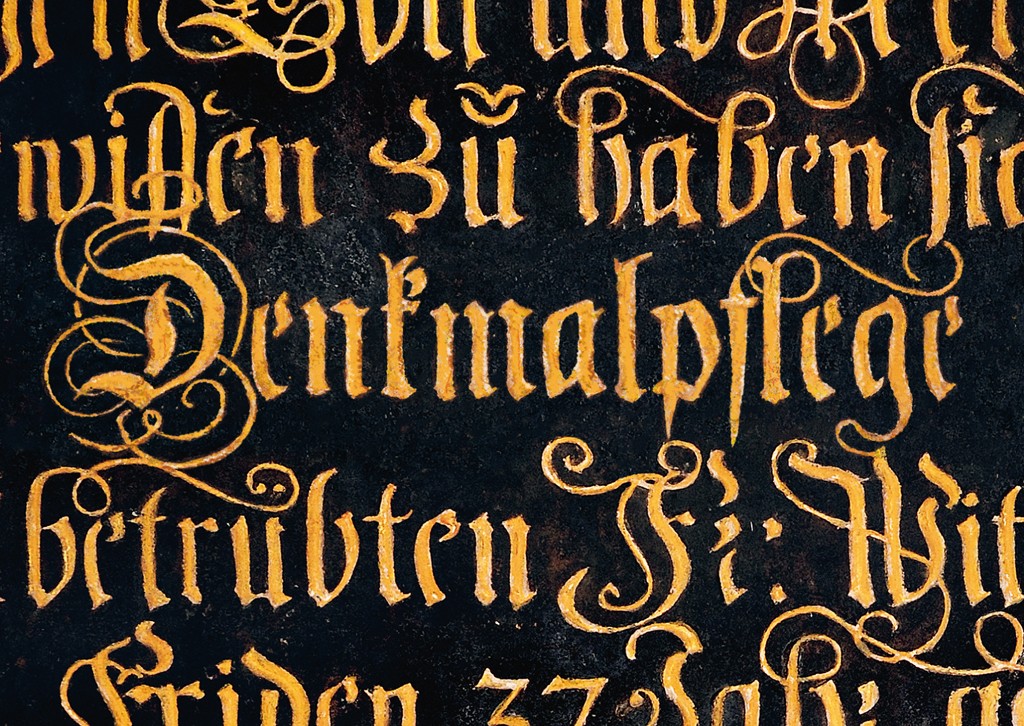 und
wißen zŭ haben
Denkmalpflege
betrubten Fr: Wit
Friden 37 Jahr